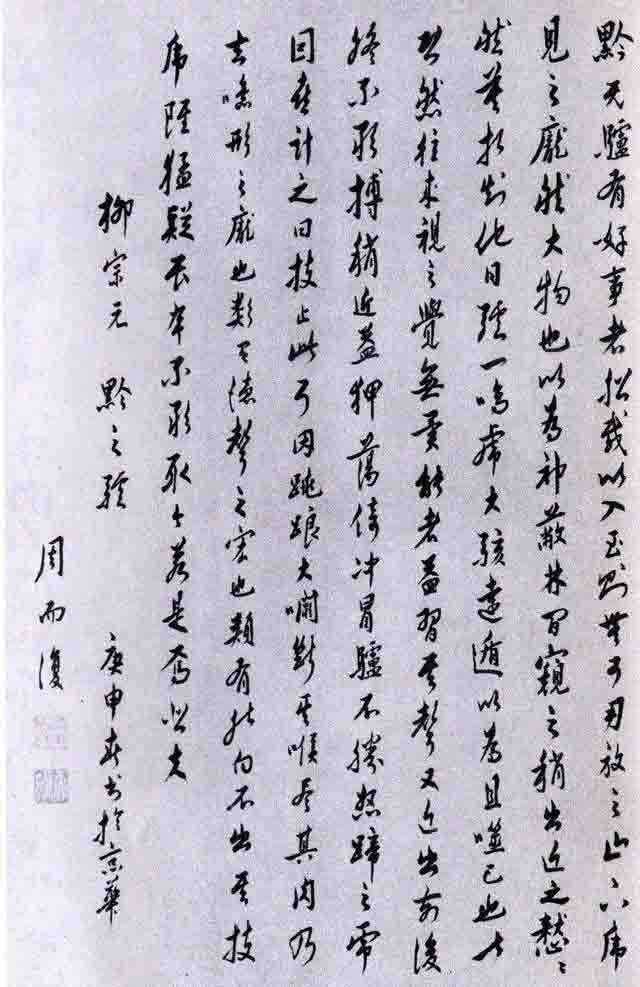 黔无驢有好事者船載以入至則無可用放之山下虎
見之龐然大物也以為神蔽林間窺之稍出近之慭〻
然莫相知他日驢一鳴虎大駭遠遁以為且噬己也甚
恐然往來視之覺無異能者益習其聲又近出前後
終不敢搏稍近益狎蕩倚冲冒驢不勝怒蹄之虎
因喜計之曰技止此耳因跳踉大㘎斷其喉盡其肉乃
去噫形之龐也類有德聲之宏也類有能向不出其技
虎雖猛疑畏卒不敢取今若是焉悲夫
柳宗元 黔之驢
庚申春书於京華
周而復